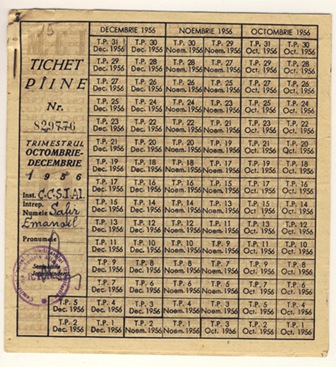 15
TICHET
PIINE
Nr.
829776
TRIMESTRUL
OCTOMBRIE-
DECEMBRIE
1956
Inst. C.C.S.I.Al.
Intrep.
Numele Safir
Emanoil
Pronumele
DECEMBRIE 1956 NOEMBRIE 1956 OCTOMBRIE 1956
T.P. 31 T.P. 30 T.P. 30 T.P. 29 T.P. 31 T.P. 30
Dec. 1956 Dec. 1956 Noem. 1956 Noem. 1956 Oct. 1956 Oct. 1956
T.P. 29 T.P. 28 T.P. 28 T.P. 27 T.P. 29 T.P. 28
Dec. 1956 Dec. 1956 Noem. 1956 Noem. 1956 Oct. 1956 Oct. 1956
T.P. 27 T.P. 26 T.P. 26 T.P. 25 T.P. 27 T.P. 26
Dec. 1956 Dec. 1956 Noem. 1956 Noem. 1956 Oct. 1956 Oct. 1956
T.P. 25 T.P. 24 T.P. 24 T.P. 23 T.P. 25 T.P. 24
Dec. 1956 Dec. 1956 Noem. 1956 Noem. 1956 Oct. 1956 Oct. 1956
T.P. 23 T.P. 22 T.P. 22 T.P. 21 T.P. 23 T.P. 22
Dec. 1956 Dec. 1956 Noem. 1956 Noem. 1956 Oct. 1956 Oct. 1956
T.P. 21 T.P. 20 T.P. 20 T.P. 19 T.P. 21 T.P. 20
Dec. 1956 Dec. 1956 Noem. 1956 Noem. 1956 Oct. 1956 Oct. 1956
T.P. 19 T.P. 18 T.P. 18 T.P. 17 T.P. 19 T.P. 18
Dec. 1956 Dec. 1956 Noem. 1956 Noem. 1956 Oct. 1956 Oct. 1956
T.P. 17 T.P. 16 T.P. 16 T.P. 15 T.P. 17 T.P. 16
Dec. 1956 Dec. 1956 Noem. 1956 Noem. 1956 Oct. 1956 Oct. 1956
T.P. 15 T.P. 14 T.P. 14 T.P. 13 T.P. 15 T.P. 14
Dec. 1956 Dec. 1956 Noem. 1956 Noem. 1956 Oct. 1956 Oct. 1956
T.P. 13 T.P. 12 T.P. 12 T.P. 11 T.P. 13 T.P. 12
Dec. 1956 Dec. 1956 Noem. 1956 Noem. 1956 Oct. 1956 Oct. 1956
T.P. 11 T.P. 10 T.P. 10 T.P. 9 T.P. 11 T.P. 10
Dec. 1956 Dec. 1956 Noem. 1956 Noem. 1956 Oct. 1956 Oct. 1956
T.P. 9 T.P. 8 T.P. 8 T.P. 7 T.P. 9 T.P. 8
Dec. 1956 Dec. 1956 Noem. 1956 Noem. 1956 Oct. 1956 Oct. 1956
T.P. 7 T.P. 6 T.P. 6 T.P. 5 T.P. 7 T.P. 6
Dec. 1956 Dec. 1956 Noem. 1956 Noem. 1956 Oct. 1956 Oct. 1956
T.P. 5 T.P. 4 T.P. 3 T.P. 4 T.P. 3 T.P. 5 T.P. 4
Dec. 1956 Dec. 1956 Dec. 1956 Noem. 1956 Noem. 1956 Oct. 1956 Oct. 1956
T.P. 2 T.P. 1 T.P. 2 T.P. 1 T.P. 3 T.P. 2 T.P. 1
Dec. 1956 Dec. 1956 Noem. 1956 Noem. 1956 Oct. 1956 Oct. 1956 Oct. 1956